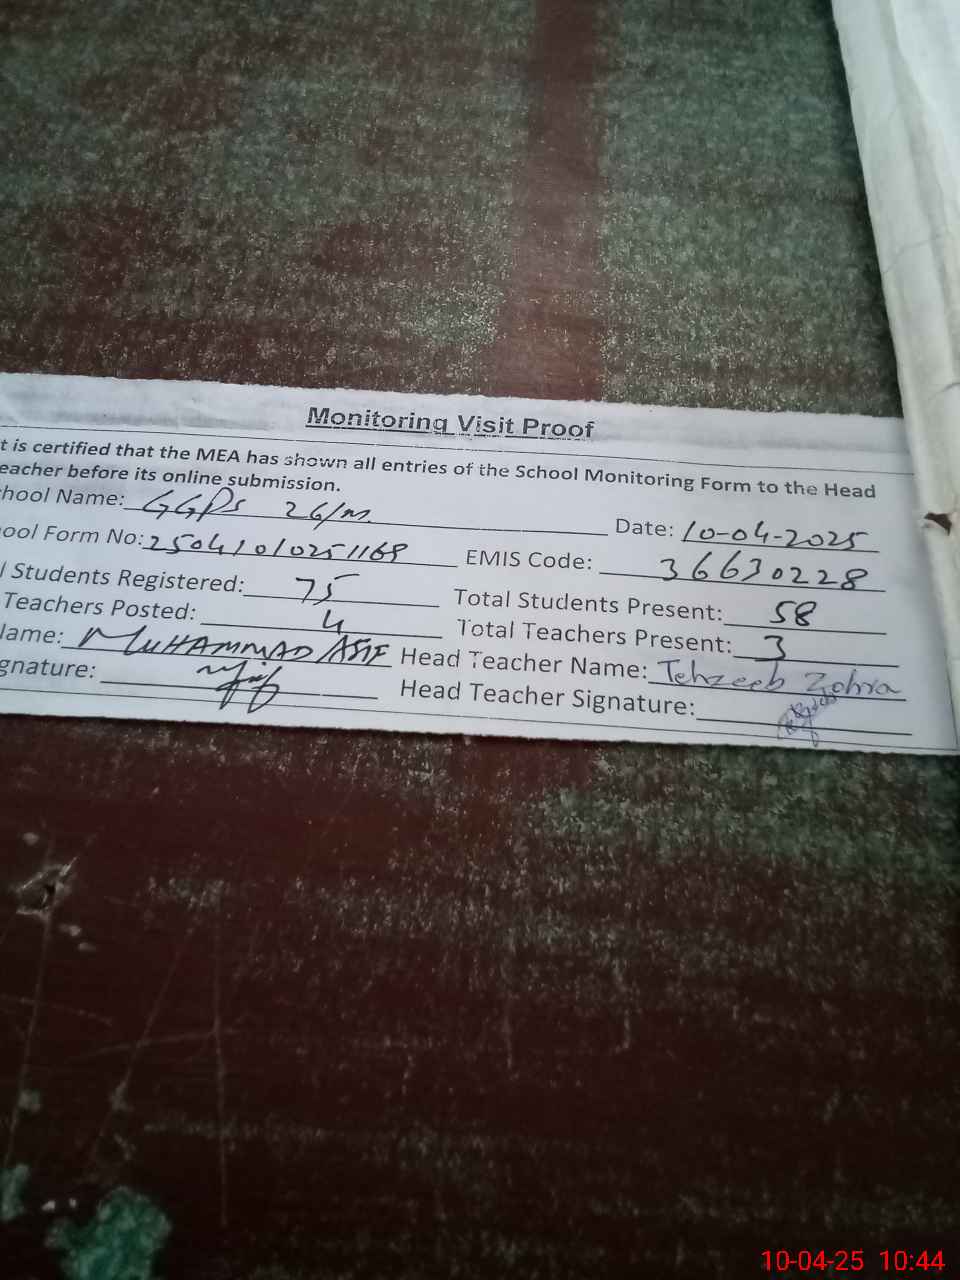 Monitoring Visit Proof
t is certified that the MEA has shown all entries of the School Monitoring Form to the Head
eacher before its online submission.
hool Name: GGPS 26/m. Date: 10-04-2025
ool Form No: 25041010251168 EMIS Code: 36630228
l Students Registered: 75 Total Students Present: 58
Teachers Posted: 4 Total Teachers Present: 3
lame: MUHAMMAD ASIF Head Teacher Name: Tehzeeb Zohra
gnature: Head Teacher Signature:
10-04-25 10:44